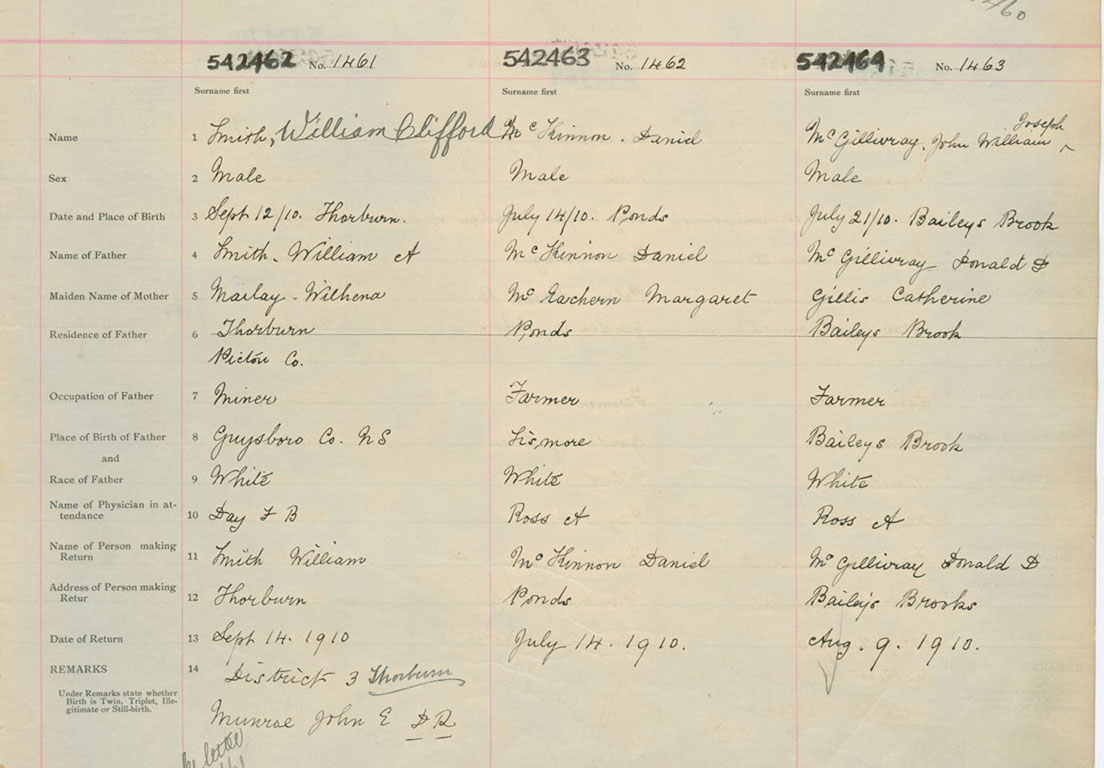 542462 No. 1461 542463 No. 1462 542464 No. 1463
Surname first Surname first Surname first
Joseph
Name 1 Smith, William Clifford McKinnon. Daniel McGillivray, John William ^
Sex 2 Male Male Male
Date and Place of Birth 3 Sept 12/10. Thorburn. July 14/10. Ponds July 21/10. Baileys Brook
Name of Father 4 Smith. William A McKinnon Daniel McGillivray Donald D
Maiden Name of Mother 5 Wilhena McEachern Margaret Gillis Catherine
Residence of Father 6 Thorburn Ponds Baileys Brook
Pictou Co.
Occupation of Father 7 Miner Farmer Farmer
Place of Birth of Father 8 Guysboro Co. NS Lismore Baileys Brook
and
Race of Father 9 White White White
Name of Physician in at-
tendance 10 Day F B Ross A Ross A
Name of Person making
Return 11 Smith William McKinnon Daniel McGillivray Donald D
Address of Person making
Retur 12 Thorburn Ponds Baileys Brooks
Date of Return 13 Sept 14. 1910 July 14. 1910. Aug. 9. 1910.
REMARKS 14 District 3 Thorburn
Under Remarks state whether
Birth is Twin, Triplet, Ille-
gitimate or Still-birth.
Munroe John E DR
letter